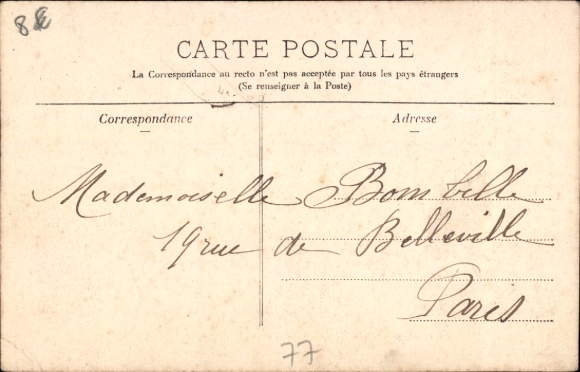 CARTE POSTALE
La Correspondance au recto n'est pas acceptée par tous les pays étrangers
(Se renseigner à la Poste)
Correspondance
Adresse
Mademoiselle Bombelle
19 rue de Belleville
Paris
77